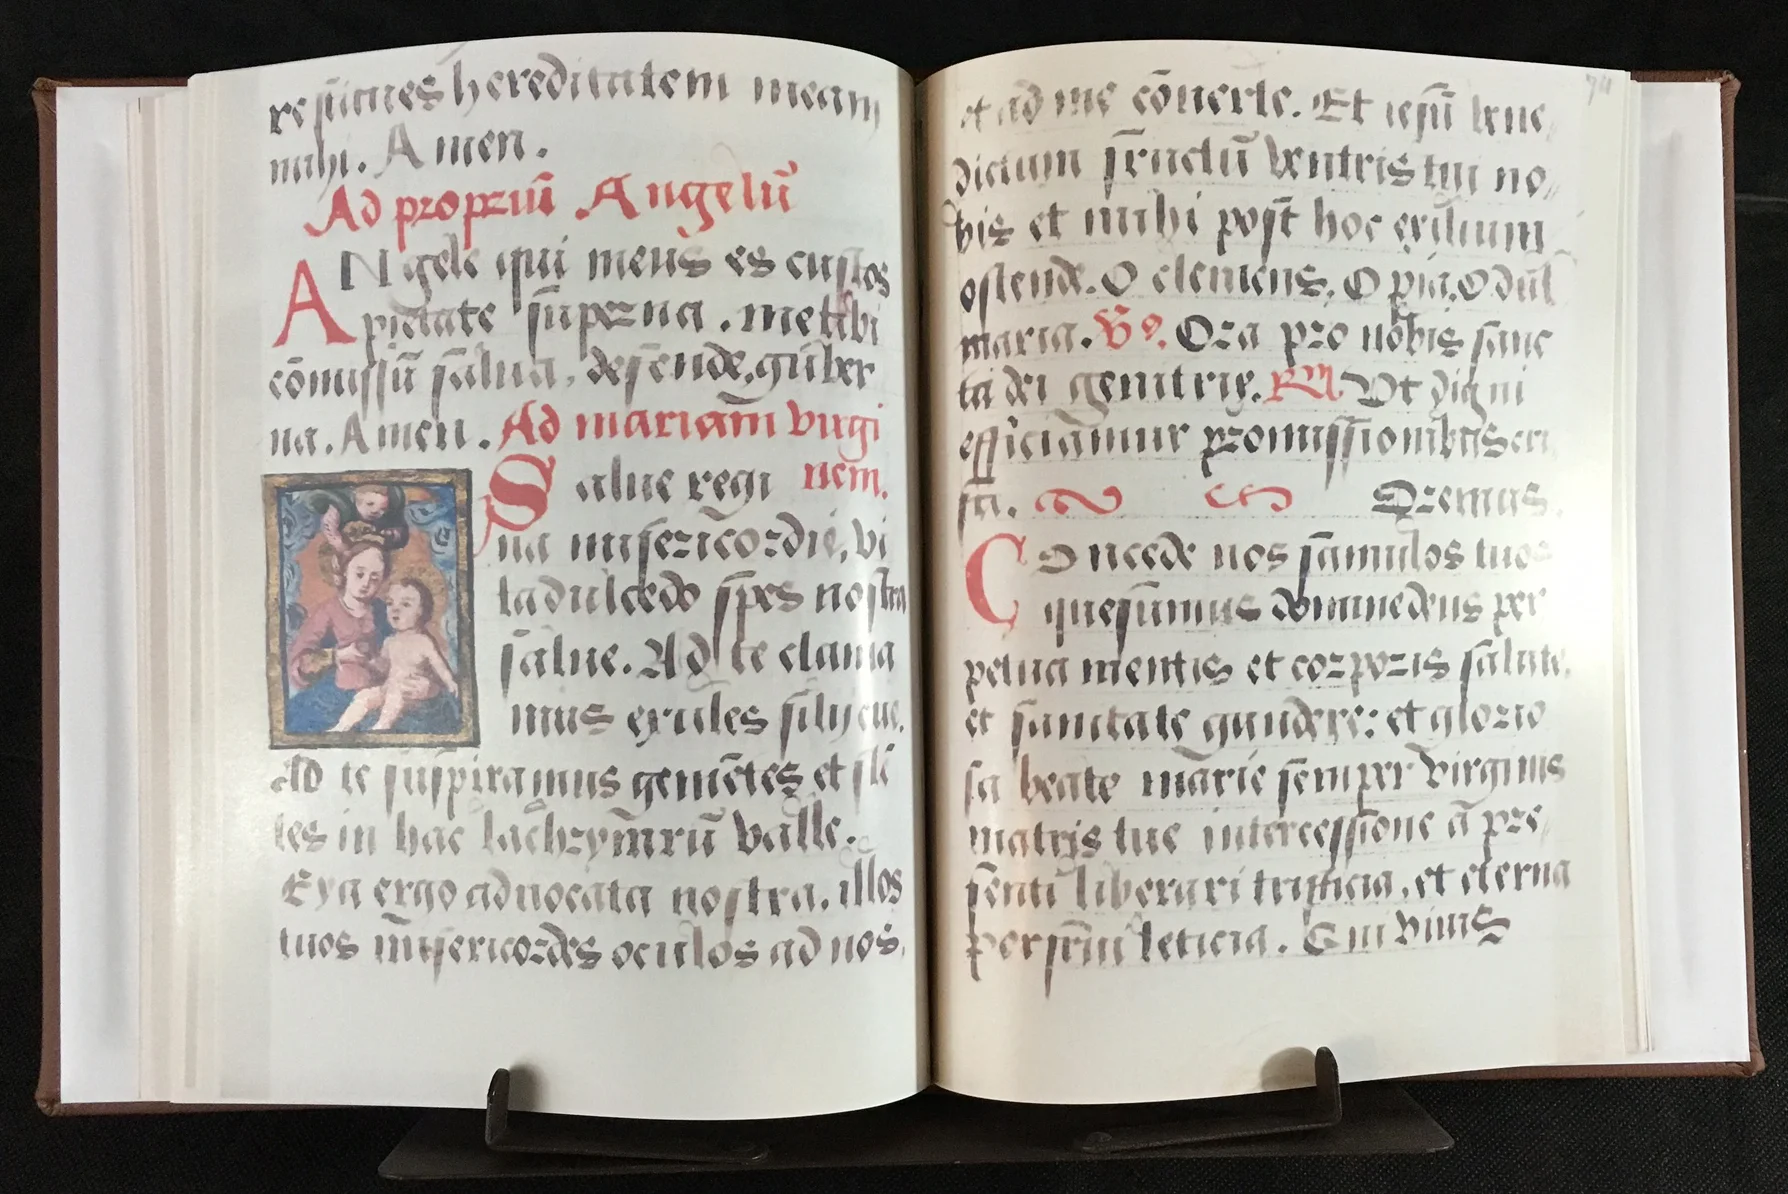 restitues hereditatem meam
mihi. Amen.
Ad propriū Angelū
ANgele qui meus es custos
pietate superna. me tibi
cōmissū salua, defende, guber
na. Amen. Ad mariam virgi
nem.
Salue regi
na misericordie, vi
ta dulcedo spes nostra
salue. Ad te clama
mus exules filij eue.
Ad te suspiramus gemētes et flē
tes in hac lachrymarū valle.
Eya ergo aduocata nostra. illos
tuos misericordes oculos ad nos,
74
et ad me cōuerte. Et iesū bene,
dictum fructū ventris tui no,,
bis et mihi post hoc exilium
ostende. O clemens, O pia, O dul
maria. V9. Ora pro nobis sanc
ta dei genitrix. R Vt digni
efficiamur promissionibus cri
sti. Oremus.
Concede nos famulos tuos
quesumus domine deus per
petua mentis et corporis salute,
et sanitate gaudere: et glorio
sa beate marie semper virginis
matris tue intercessione a pre,
senti liberari tristicia, et eterna
perfrui leticia. Qui viuis